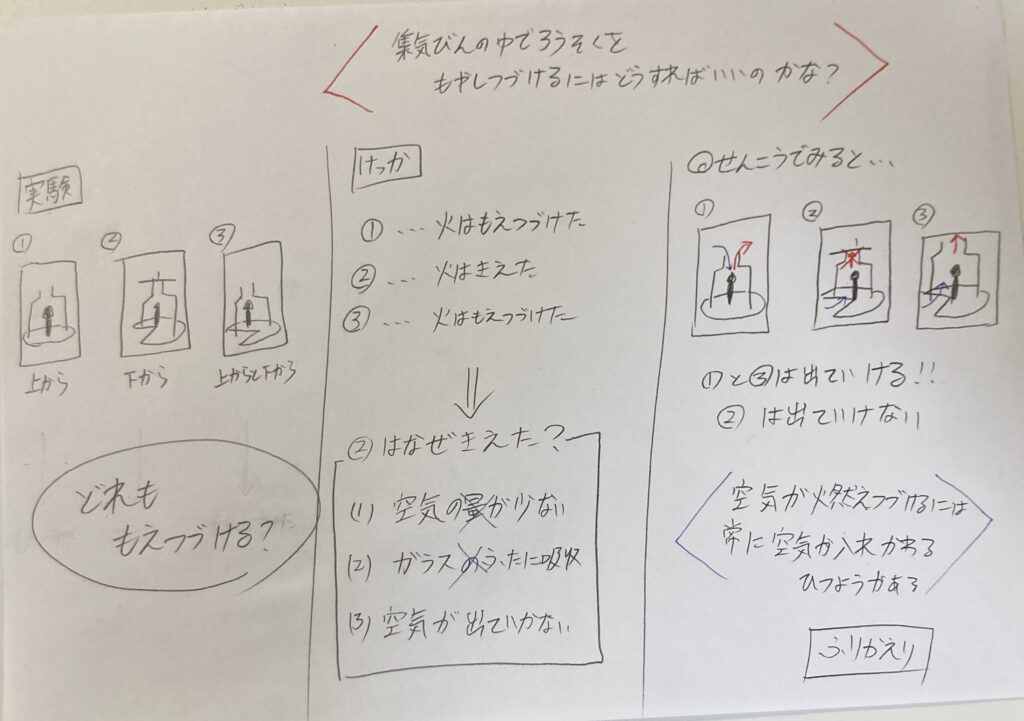 集気びんの中でろうそくを
もやしつづけるにはどうすればいいのかな?
実験
①
②
③
上から
下から
上からと下から
どれも
もえつづける?
けっか
①…火はもえつづけた
②…火はきえた
③…火はもえつづけた
②はなぜきえた?
(1) 空気の量が少ない
(2) ガラスのふたに吸収
(3) 空気が出ていかない
◎せんこうでみると…
①
②
③
①と③は出ていける!!
②は出ていけない
空気が火燃えつづけるには
常に空気が入れかわる
ひつようがある
ふりかえり